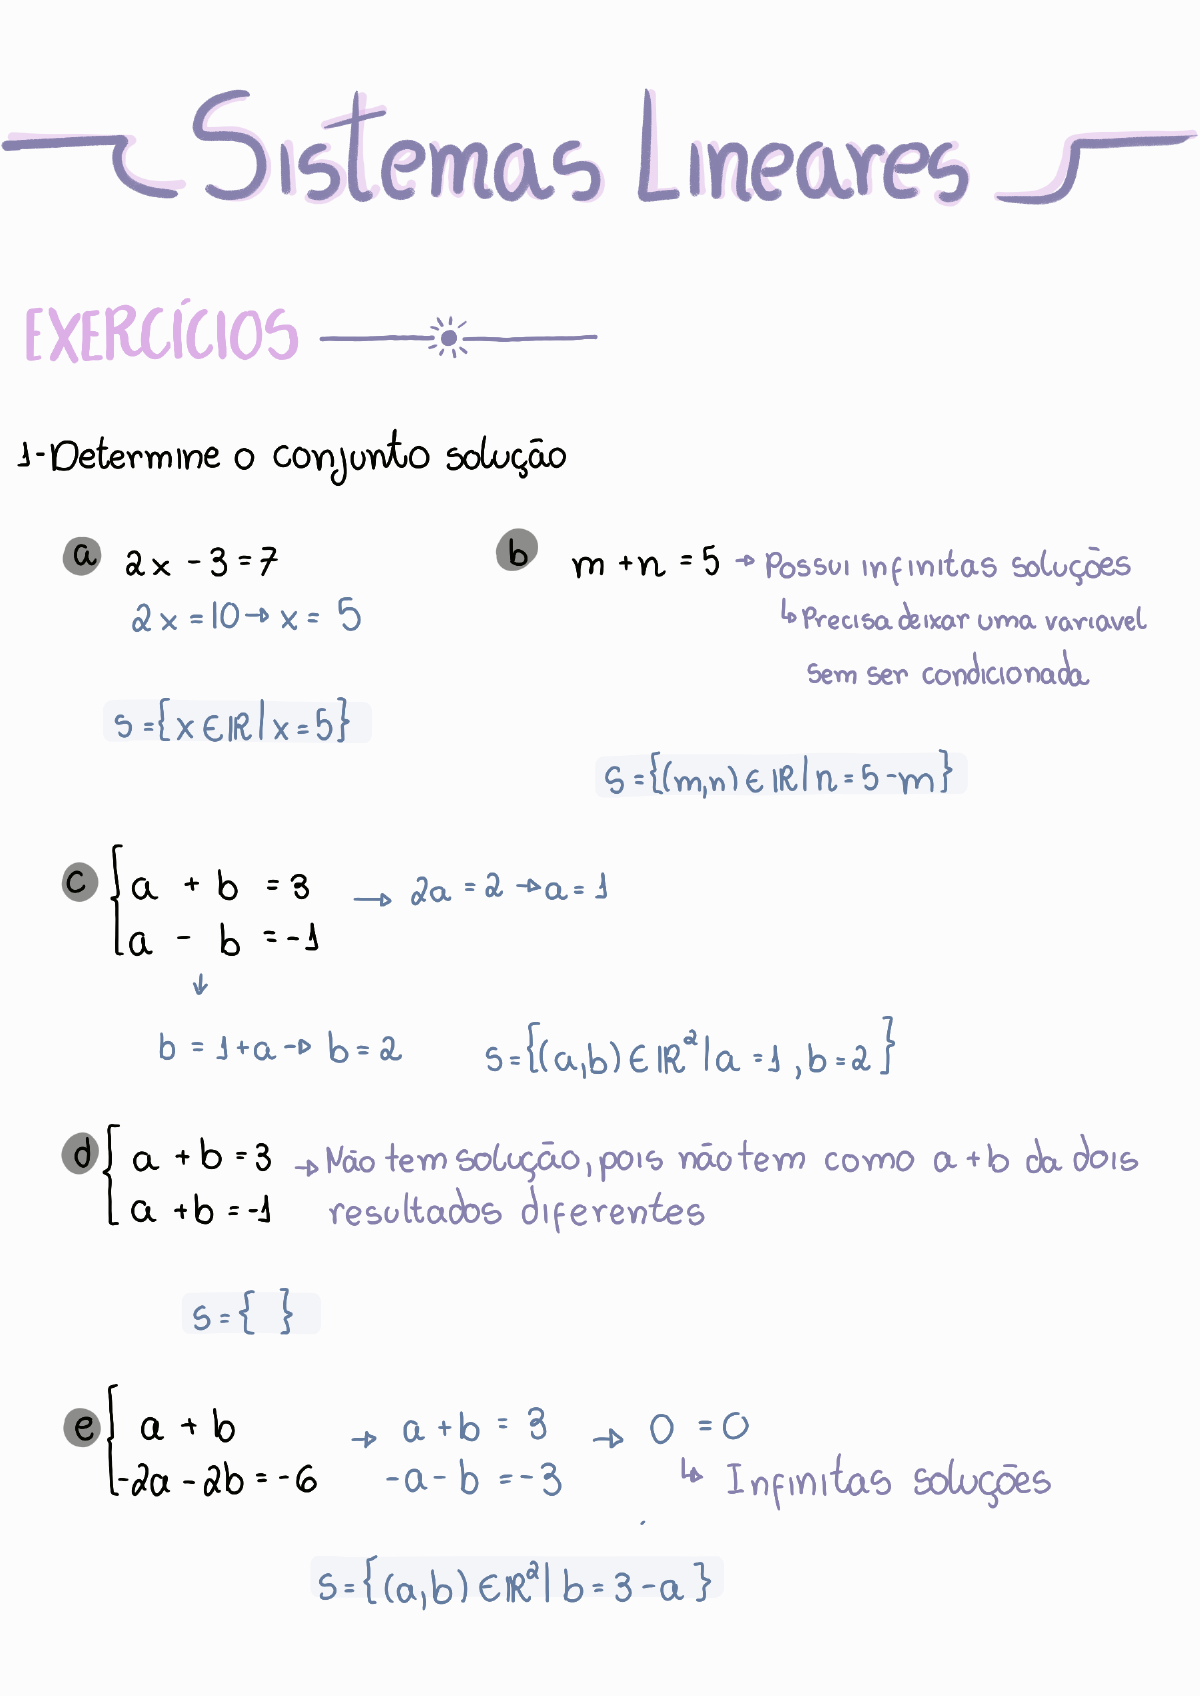 Sistemas Lineares
EXERCÍCIOS
1-Determine o conjunto solução
a 2x - 3 = 7
2x = 10 → x = 5
S = {x ∈ IR | x = 5}
b m + n = 5 → Possui infinitas soluções
↳ Precisa deixar uma variavel
sem ser condicionada
S = {(m,n) ∈ IR | n = 5 - m}
c { a + b = 3 → 2a = 2 → a = 1
a - b = -1
↓
b = 1 + a → b = 2 S = {(a,b) ∈ IR² | a = 1, b = 2}
d { a + b = 3 → Não tem solução, pois não tem como a + b da dois
a + b = -1 resultados diferentes
S = { }
e { a + b → a + b = 3 → 0 = 0
-2a - 2b = -6 -a - b = -3 ↳ Infinitas soluções
S = {(a,b) ∈ IR² | b = 3 - a}